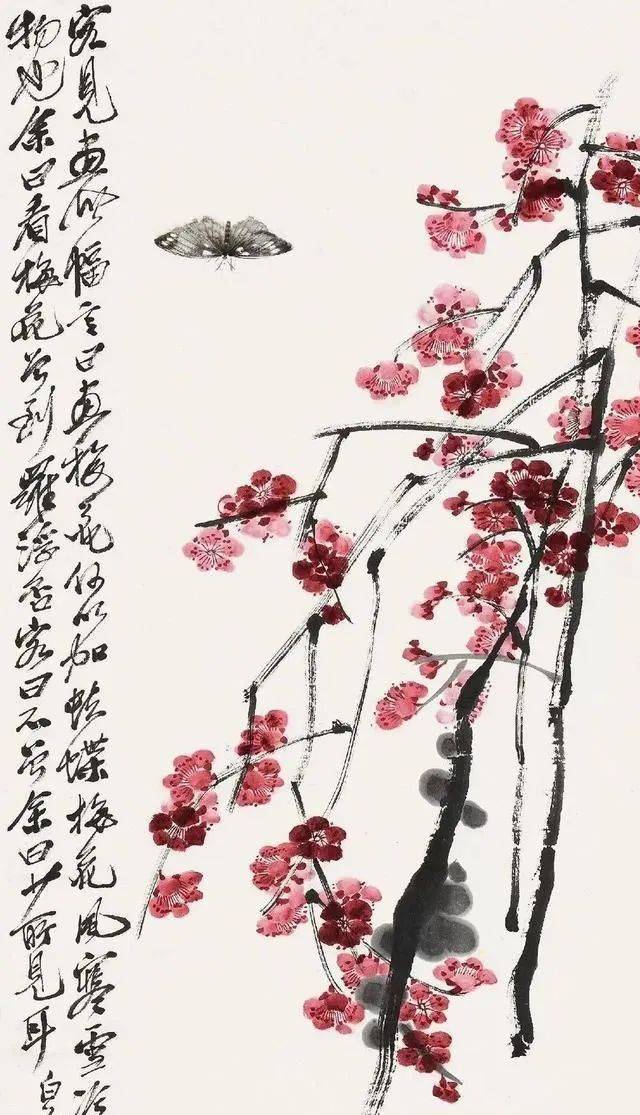 客見畫此幅言曰畫梅花何以加蛺蝶梅花風寒雪冷
物也余曰看梅花曾到羅浮否客曰不曾余曰少所見耳白